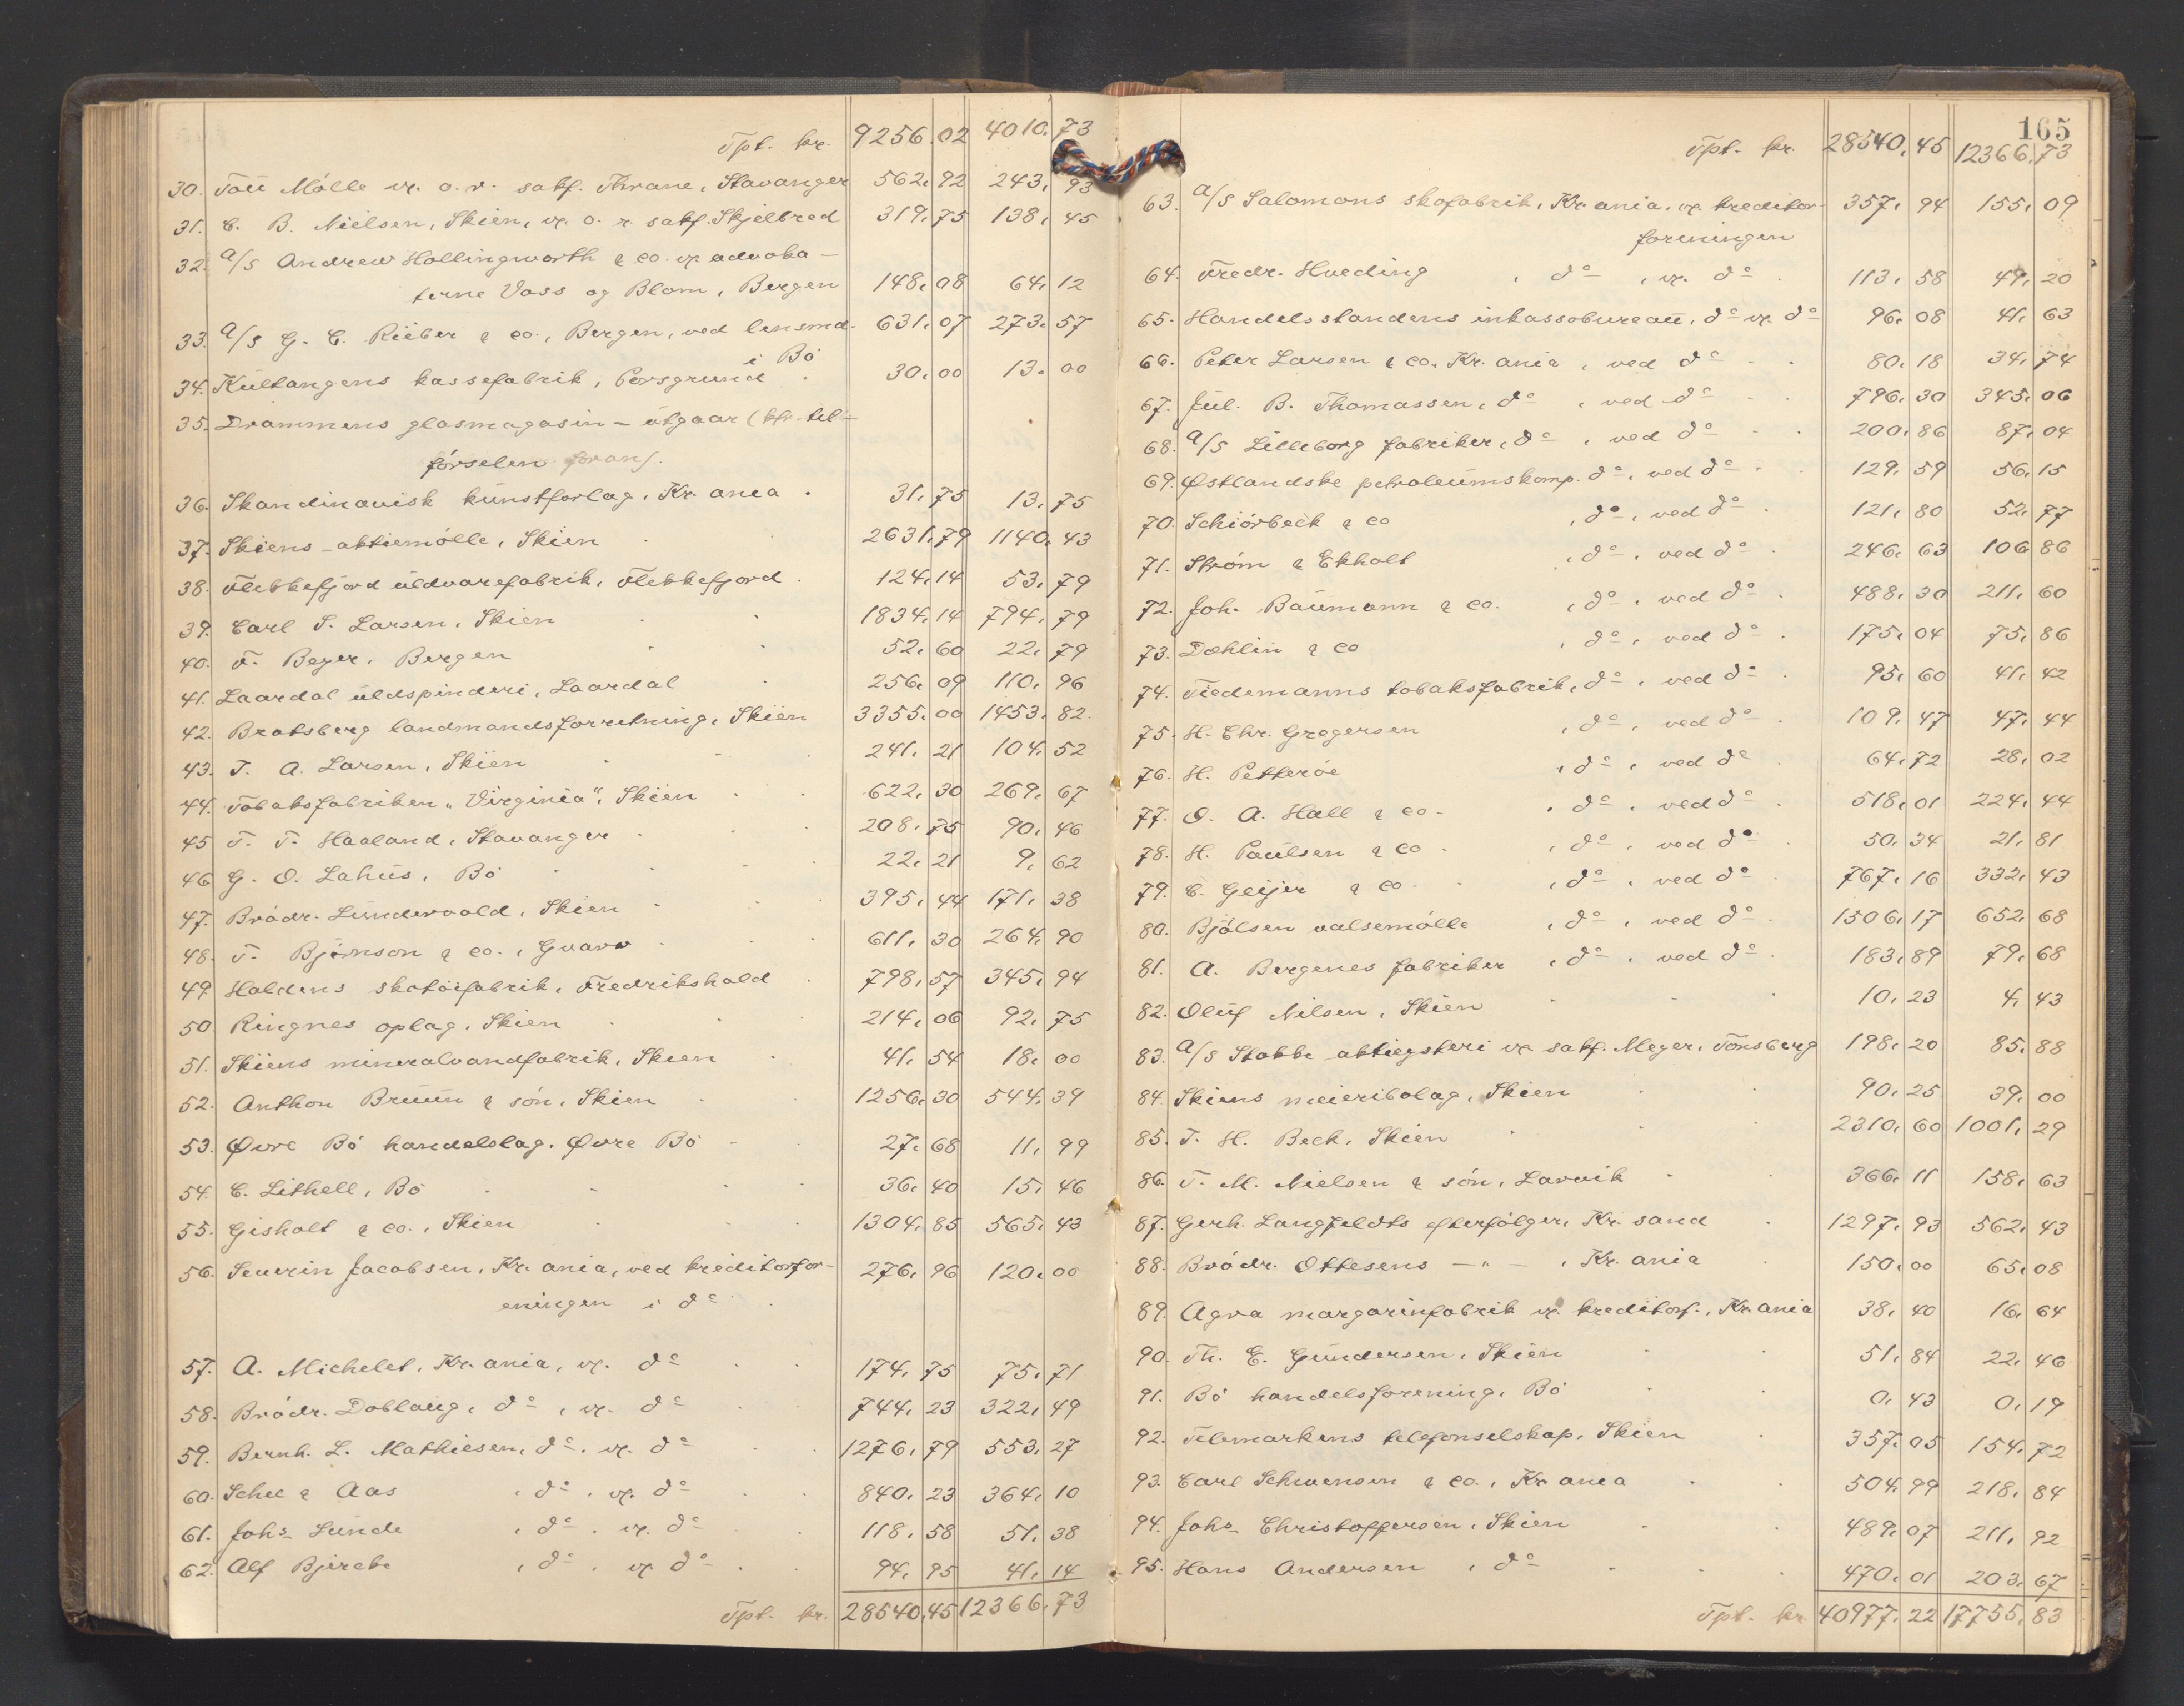 Tpt. kr. 9256.02 4010.73
30. Tou Mölle v. o. r. sakf. Thrane, Stavanger 562,92 243,93
31. C. B. Nielsen, Skien, v. o. r. sakf. Skjelbred 319,75 138,45
32. A/S Andrew Hollingworth & co. v. advoka-
terne Voss og Blom, Bergen 148,08 64,12
33. A/S G. C. Rieber & co., Bergen, ved lensmd. 631,07 273,57
i Bö
34. Kultangens kassefabrik, Porsgrund 30,00 13,00
35. Drammens glasmagasin – utgaar (kfr. til-
förselen foran).
36. Skandinavisk kunstforlag, Kr.ania 31,75 13,75
37. Skiens aktiemölle, Skien 2631,79 1140,43
38. Flekkefjord uldvarefabrik, Flekkefjord 124,14 53,79
39. Carl S. Larsen, Skien 1834,14 794,79
40. F. Beyer, Bergen 52,60 22,79
41. Laardal uldspinderi, Laardal 256,09 110,96
42. Bratsberg landmandsforretning, Skien 3355,00 1453,82
43. T. A. Larsen, Skien 241,21 104,52
44. Tobaksfabriken „Virginia", Skien 622,30 269,67
45. T. T. Haaland, Stavanger 208,75 90,46
46. G. O. Lahus, Bö 22,21 9,62
47. Brödr. Lundervold, Skien 395,44 171,38
48. T. Björnson & co., Gvarv 611,30 264,90
49. Haldens skotöifabrik, Fredrikshald 798,57 345,94
50. Ringnes oplag, Skien 214,06 92,75
51. Skiens mineralvandfabrik, Skien 41,54 18,00
52. Anthon Bruun & sön, Skien 1256,30 544,39
53. Øvre Bö handelslag, Øvre Bö 27,68 11,99
54. C. Lithell, Bö 36,40 15,46
55. Gisholt & co., Skien 1304,85 565,43
56. Severin Jacobsen, Kr.ania, ved kreditorfor- 276,96 120,00
eningen i do
57. A. Michelet, Kr.ania, v. do 174,75 75,71
58. Brödr. Dobloug, do, v. do 744,23 322,49
59. Bernh. L. Mathiesen, do, v. do 1276,79 553,27
60. Schee & Aas, do, v. do 840,23 364,10
61. Johs Lunde, do, v. do 118,58 51,38
62. Alf Bjercke, do, v. do 94,95 41,14
Tpt. kr. 28540,45 12366,73
165
Tpt. kr. 28540,45 12366,73
63. A/S Salomons skofabrik, Kr.ania, v. kreditor- 357,94 155,09
foreningen
64. Fredr. Hveding, do, v. do 113,58 49,20
65. Handelsstandens inkassobureau, do v. do 96,08 41,63
66. Peter Larsen & co. Kr.ania, ved do 80,18 34,74
67. Jul. B. Thomassen, do, ved do 796,30 345,06
68. A/S Lilleborg fabriker, do, ved do 200,86 87,04
69. Østlandske petroleumskomp. do, ved do 129,59 56,15
70. Schiörbeck & co, do, ved do 121,80 52,77
71. Ström & Ekholt, do, ved do 246,63 106,86
72. Joh. Baumann & co., do, ved do 488,30 211,60
73. Dæhlin & co, do, ved do 175,04 75,86
74. Tiedemanns tobaksfabrik, do, ved do 95,60 41,42
75. H. Chr. Gregersen, do, ved do 109,47 47,44
76. H. Petteröe, do, ved do 64,72 28,02
77. O. A. Hall & co., do, ved do 518,01 224,44
78. H. Paulsen & co., do, ved do 50,34 21,81
79. C. Geijer & co., do, ved do 767,16 332,43
80. Bjölsen valsemölle, do, ved do 1506,17 652,68
81. A. Bergenes fabriker, do, ved do 183,89 79,68
82. Oluf Nilsen, Skien 10,23 4,43
83. A/S Stokke aktieysteri v. sakf. Meyer, Tönsberg 198,20 85,88
84. Skiens meieribolag, Skien 90,25 39,00
85. T. H. Beck, Skien 2310,60 1001,29
86. T. M. Nielsen & sön, Larvik 366,11 158,63
87. Gerh. Langfeldts efterfölger, Kr.sand 1297,93 562,43
88. Brödr. Ottesens —„—, Kr.ania 150,00 65,08
89. Agra margarinfabrik v. kreditorf., Kr.ania 38,40 16,64
90. Th. E. Gundersen, Skien 51,84 22,46
91. Bö handelsforening, Bö 0,43 0,19
92. Telemarkens telefonselskap, Skien 357,05 154,72
93. Carl Schwensen & co., Kr.ania 504,99 218,84
94. Johs Christoffersen, Skien 489,07 211,92
95. Hans Andersen, do 470,01 203,67
Tpt. kr 40977,22 17755,83